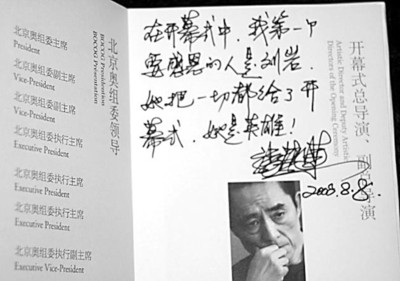 北京奥组委领导
BOCOG Presidential
BOCOG Presentation
北京奥组委主席
President
北京奥组委副主席
Vice-President
北京奥组委副主席
Vice-President
北京奥组委执行主席
Executive President
北京奥组委执行主席
Executive President
北京奥组委执行主席
Executive President
北京奥组委执行副主席
Executive Vice-President
在开幕式中，我第一个
要感恩的人是刘岩.
她把一切都给了开
幕式，她是英雄！
张艺谋
2008.8.8.
开幕式总导演、副总导演
Artistic Director and Deputy Artistic
Directors of the Opening Ceremony